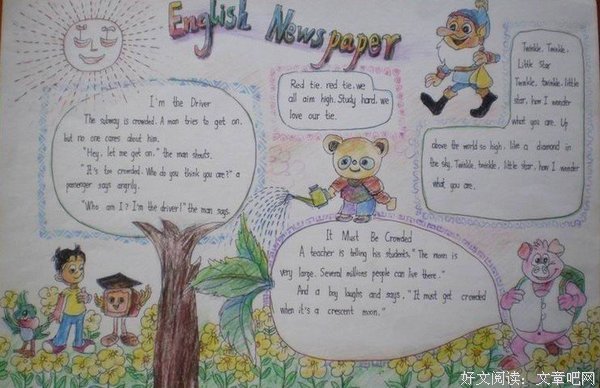 English Newspaper
I'm the Driver
The subway is crowded. A man tries to get on,
but no one cares about him.
"Hey, let me get on." the man shouts.
"It's too crowded. Who do you think you are?" a
passenger says angrily.
"Who am I? I'm the driver!" the man says.
Red tie, red tie, we
all aim high. Study hard, we
love our tie.
Twinkle, Twinkle,
Little Star
Twinkle, twinkle, little
star, how I wonder
what you are. Up
above the world so high, like a diamond in
the sky. Twinkle, twinkle, little star, how I wonder
what you are.
It Must Be Crowded
A teacher is telling his students, "The moon is
very large. Several millions people can live there."
And a boy laughs and says, "It must get crowded
when it's a crescent moon."
好文阅读：文章吧网